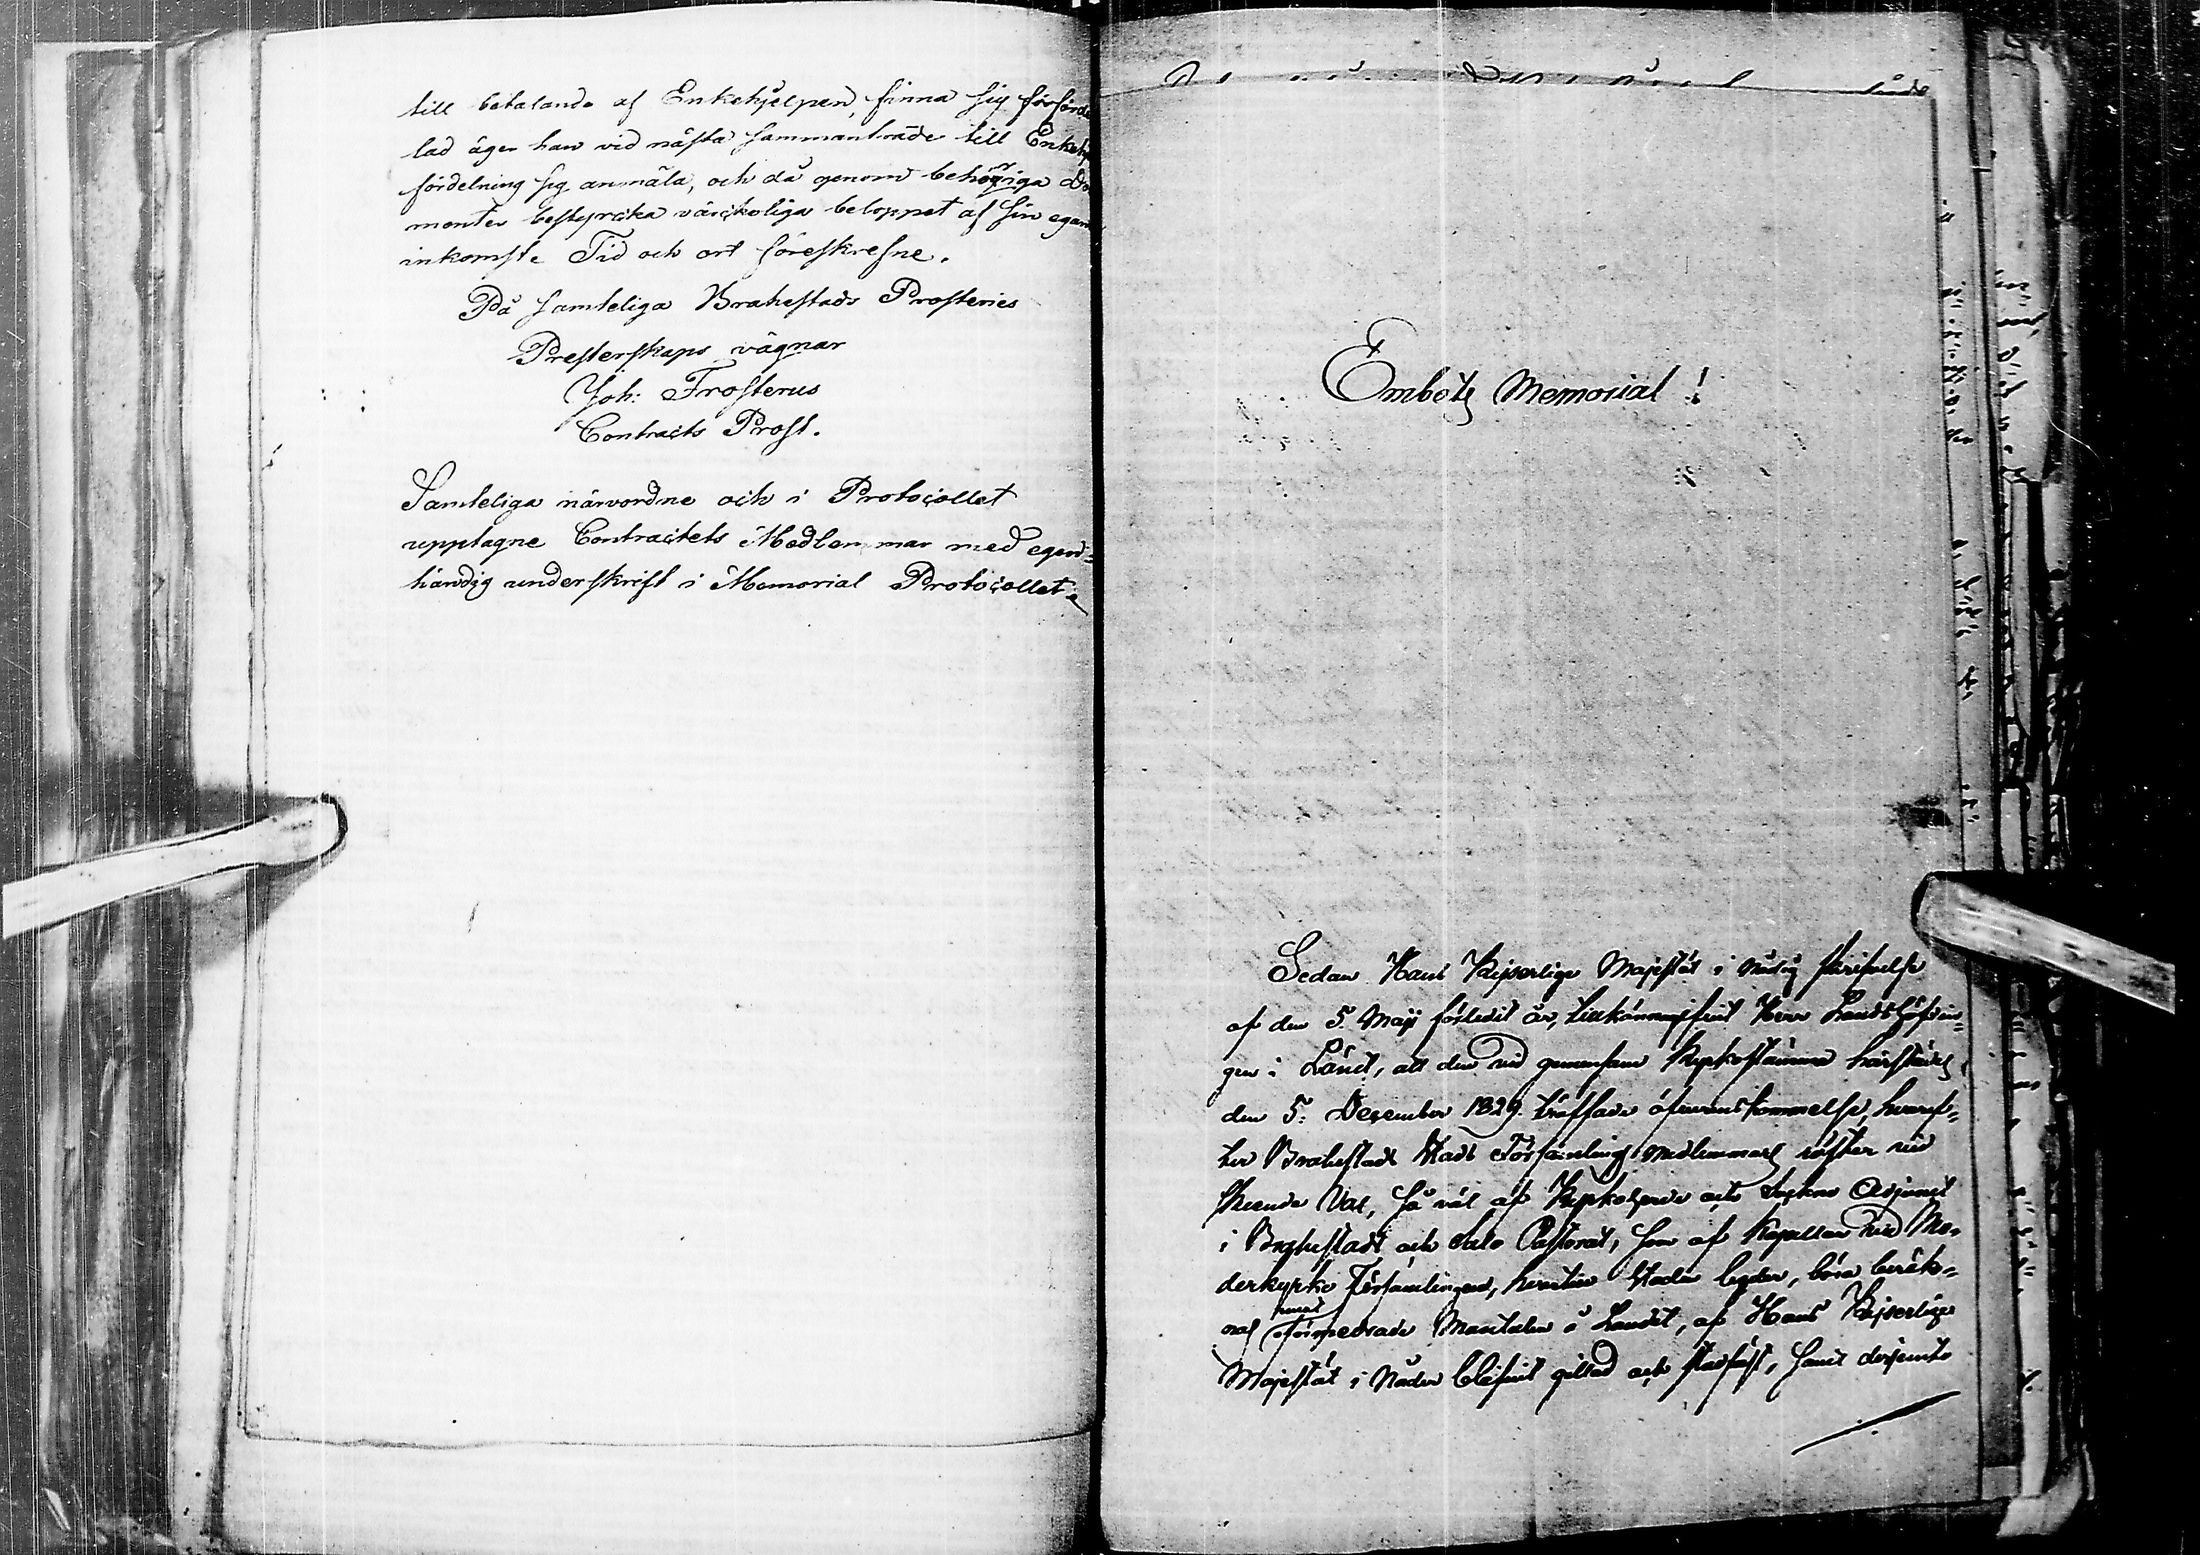 till betalande af Enkehjelpen, finna sig förförde
lad äger han vid nästa sammanträde till Enkehj
fördelning sig anmäla, och då genom behöriga Do
menter bestyrcka värckeliga beloppet af sin egan
inkomst. Tid och ort föreskrefne.
På samteliga Brahestads Prosteries
Presterskaps vägnar
Joh: Frosterus
Contracts Prost.
Samteliga närvordne och i Protocollet
upptagne Contractets Medlemmar med egen=
händig underskrift i Memorial Protocollet.
Embets Memorial!
Sedan Hans Kejserliga Majestät i Nådig skrifvelse
af den 5. Maji förledit år, tillkännagifvit Herr Landshöfdin=
gen i Länet, att den vid gemensam Kyrkostämma härstädes
den 5. December 1829. träffade öfverenskommelse, hvaref=
ter Brahestads Stads Församlings medlemmars röster vid
skeende Val, så väl af Kyrkoherde och Sockne Adjunct
i Brahestads och Salo Pastorat, som af Kapellan vid Mo=
derkyrko Församlingen, hvarutin Staden lyder, böra beräk=
nas emot förmedlade Mantalen å Landet, af Hans Kejserliga
Majestät i Nåder blifvit gillad och stadfäst, samt derjemte